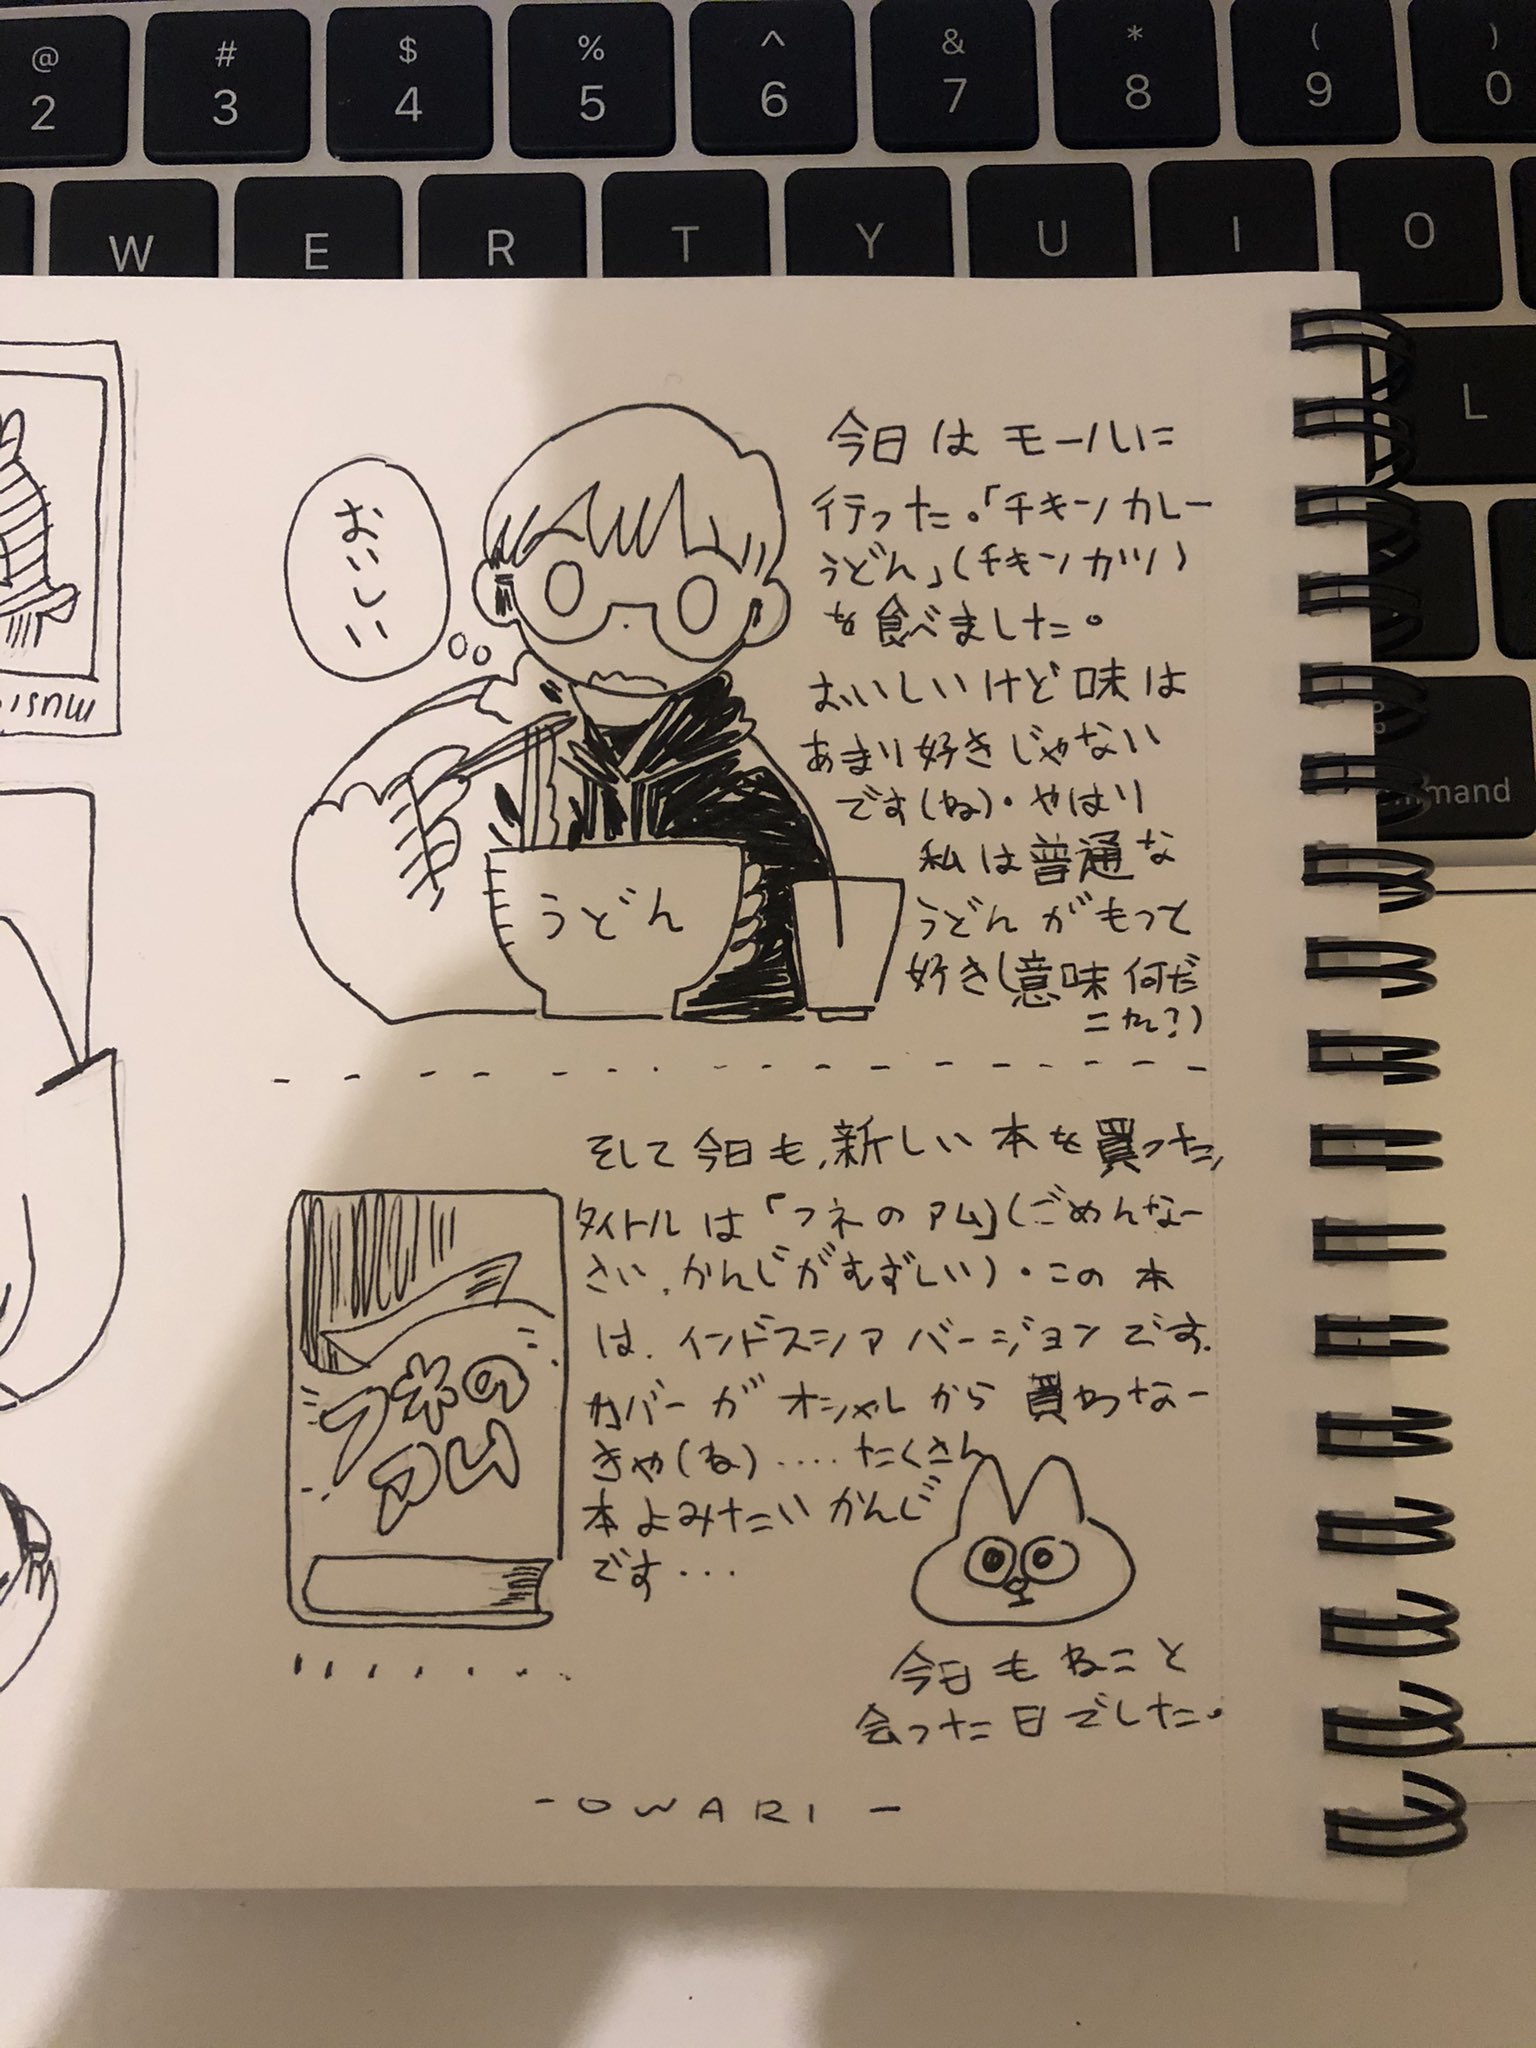 @
2
#
3
$
4
%
5
^
6
&
7
*
8
(
9
)
0
W
E
R
T
Y
U
I
O
L
mmand
MUSI
おいしい
うどん
今日はモールに
行った。「チキンカレー
うどん」(チキンカツ)
を食べました。
おいしいけど味は
あまり好きじゃない
です(ね)・やはり
私は普通な
うどんがもっと
好き(意味何だ
これ?)
そして今日も、新しい本を買った、
タイトルは「フネのアム」(ごめんなー
さい、かんじがむずしい)・この本
は、インドスシアバージョンです。
カバーがオシャレから買わなー
きゃ(ね)‥‥たくさん
本よみたいかんじ
です・・・
フネの
アム
今日もねこと
会った日でした。
-OWARI-